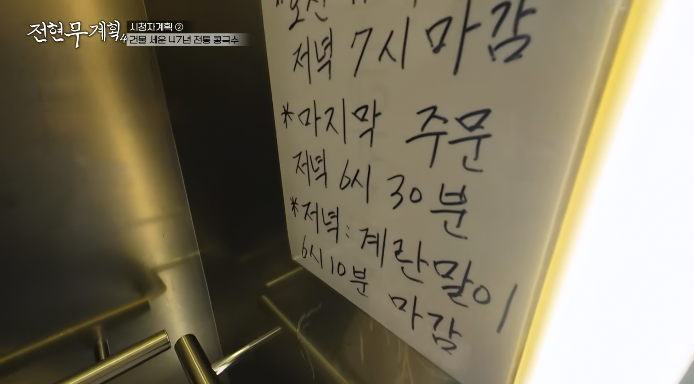 전현무계획4
시청자계획 ②
건물 세운 47년 전통 콩국수
저녁 7시 마감
*마지막 주문
저녁 6시 30분
*저녁: 계란말이
6시 10분 마감